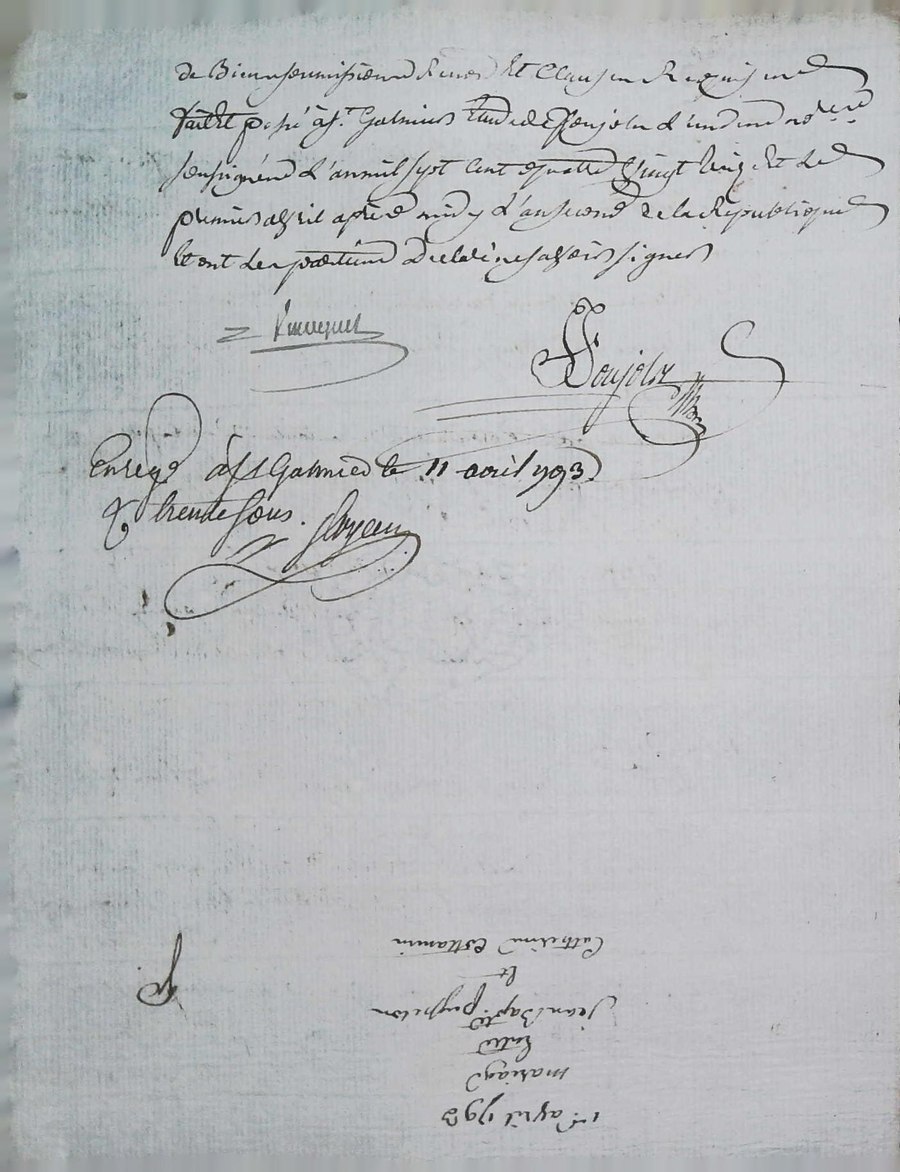 de Biens soumissions Renon Et Clauses Requises
fait Et passé à st. Galmier Etude de Ponjolx l'un des no.res
soussignés l'an mil sept cent quatre vingt treize Et Le
premier avril après midy l'an second de la République
Et ont les parties déclaré ne savoir signer
Ponjolx
Enregé à st Galmier le 11 avril 1793
R trente sous.
1er avril 1793
mariage
Entre
jean Bapte peyselon
Et
Catherine Cottancin